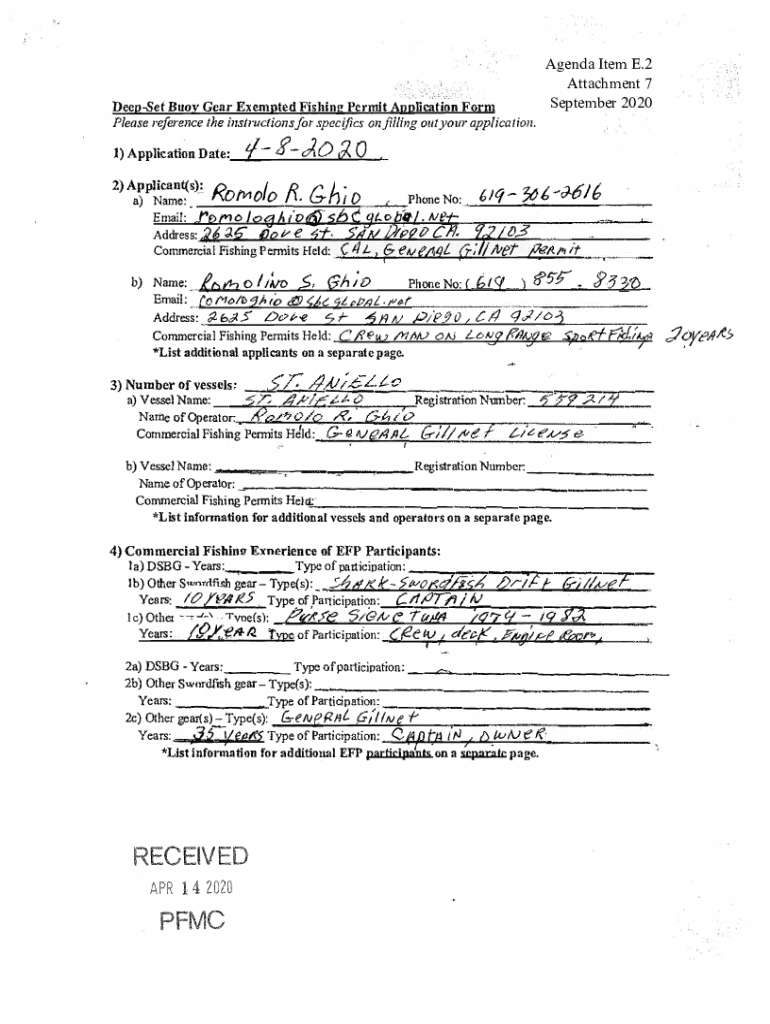 Agenda Item E.2
Attachment 7
September 2020
Deep-Set Buoy Gear Exempted Fishing Permit Application Form
Please reference the instructions for specifics on filling out your application.
1) Application Date: 4-8-2020
2) Applicant(s):
a) Name: Romolo R. Ghio Phone No: 619-306-2616
Email: romologhio@sbcglobal.net
Address: 2625 Dove st. SAN Diego CA. 92103
Commercial Fishing Permits Held: CAL, General Gill Net Permit
b) Name: Romolino S. Ghio Phone No: (619) 855-8330
Email: romologhio@sbcglobal.net
Address: 2625 Dove St SAN Diego, CA 92103
Commercial Fishing Permits Held: Crew MAN ON LONG RANGE SportFishing 20 yeARS
*List additional applicants on a separate page.
3) Number of vessels: ST. ANIELLO
a) Vessel Name: ST. ANIELLO Registration Number: 559214
Name of Operator: Romolo R. Ghio
Commercial Fishing Permits Held: GeNeRAL Gill Net License
b) Vessel Name: Registration Number:
Name of Operator:
Commercial Fishing Permits Held:
*List information for additional vessels and operators on a separate page.
4) Commercial Fishing Experience of EFP Participants:
1a) DSBG - Years: Type of participation:
1b) Other Swordfish gear – Type(s): SHARK-SWORDfish Drift Gillnet
Years: 10 YEARS Type of Participation: CAPTAIN
1c) Other Type(s): PURSE SIENE TUNA 1974 - 1982
Years: 10 YEAR Type of Participation: CRew, deck, ENGINE Room,
2a) DSBG - Years: Type of participation:
2b) Other Swordfish gear – Type(s):
Years: Type of Participation:
2c) Other gear(s) – Type(s): GeNeRAL Gillnet
Years: 35 years Type of Participation: CAPtAiN, OWNER
*List information for additional EFP participants on a separate page.
RECEIVED
APR 14 2020
PFMC